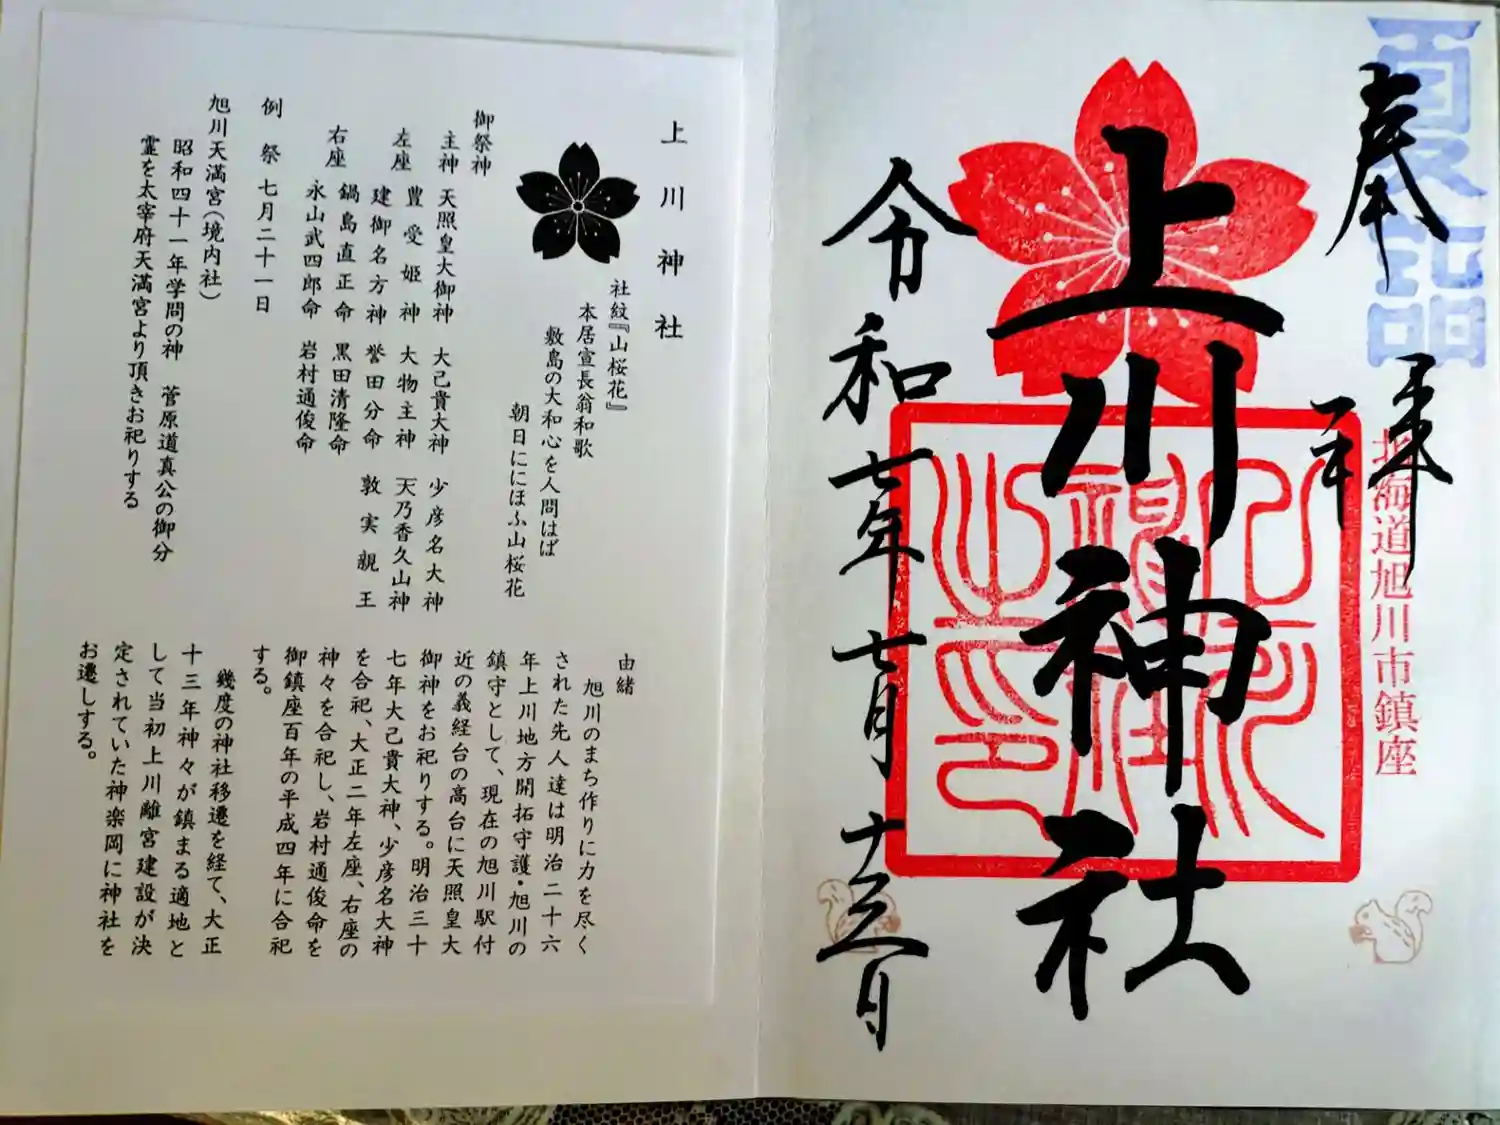 夏詣
奉拝
北海道旭川市鎮座
上川神社
令和七年七月十三日
上川神社
社紋『山桜花』
本居宣長翁和歌
敷島の大和心を人問はば
朝日ににほふ山桜花
御祭神
主神 天照皇大御神 大己貴大神 少彦名大神
左座 豊受姫神 大物主神 天乃香久山神
建御名方神 誉田分命 敦実親王
右座 鍋島直正命 黒田清隆命
永山武四郎命 岩村通俊命
例祭 七月二十一日
旭川天満宮(境内社)
昭和四十一年学問の神 菅原道真公の御分
霊を太宰府天満宮より頂きお祀りする
由緒
旭川のまち作りに力を尽く
された先人達は明治二十六
年上川地方開拓守護・旭川の
鎮守として、現在の旭川駅付
近の義経台の高台に天照皇大
御神をお祀りする。明治三十
七年大己貴大神、少彦名大神
を合祀、大正二年左座、右座の
神々を合祀し、岩村通俊命を
御鎮座百年の平成四年に合祀
する。
幾度の神社移遷を経て、大正
十三年神々が鎮まる適地と
して当初上川離宮建設が決
定されていた神楽岡に神社を
お遷しする。